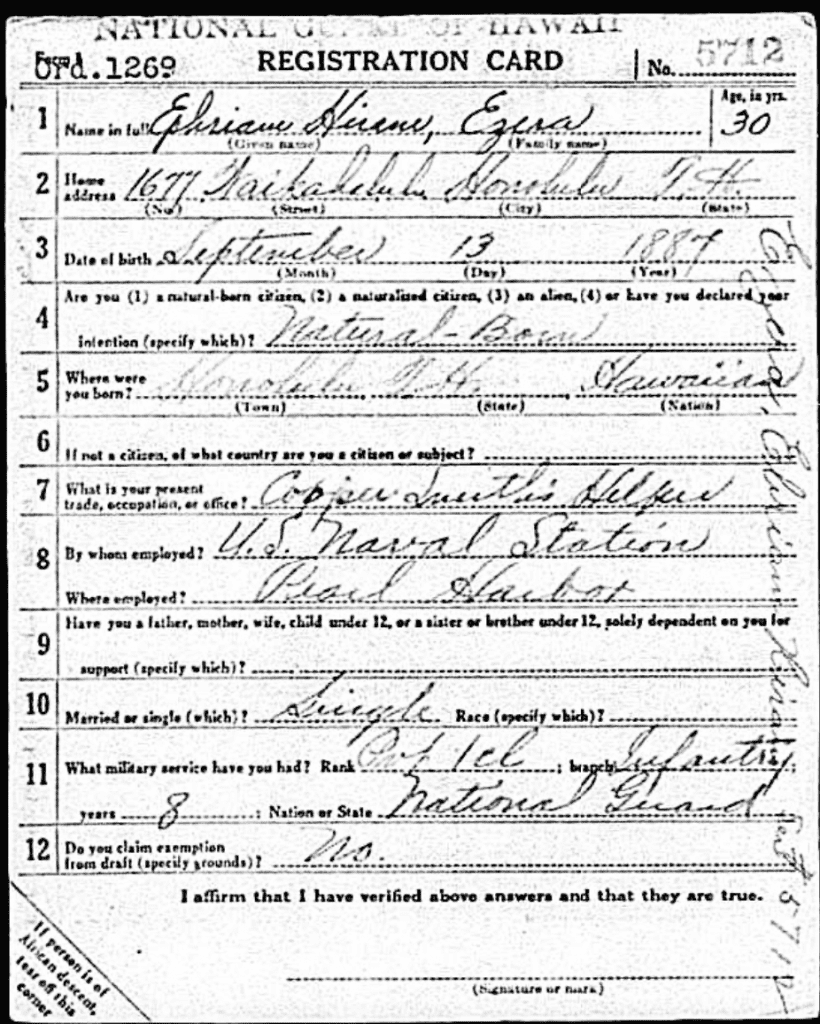 NATIONAL GUARD OF HAWAII
Form 1
Ord.1269 REGISTRATION CARD No. 5712
1 Name in full Ephriam Hiram, Ezera Age, in yrs. 30
(Given name) (Family name)
2 Home address 1677 Honolulu T.H.
(No.) (Street) (City) (State)
3 Date of birth September 13 1887
(Month) (Day) (Year)
Are you (1) a natural-born citizen, (2) a naturalized citizen, (3) an alien, (4) or have you declared your
4 intention (specify which)? Natural-Born
5 Where were you born? Honolulu T.H. Hawaiian
(Town) (State) (Nation)
6 If not a citizen, of what country are you a citizen or subject?
7 What is your present trade, occupation, or office? Copper Smith's Helper
8 By whom employed? U.S. Naval Station
Where employed? Pearl Harbor
Have you a father, mother, wife, child under 12, or a sister or brother under 12, solely dependent on you for
9 support (specify which)?
10 Married or single (which)? Single Race (specify which)?
11 What military service have you had? Rank Pvt 1cl ; branch Infantry
years 8 ; Nation or State National Guard
12 Do you claim exemption from draft (specify grounds)? No.
I affirm that I have verified above answers and that they are true.
(Signature or mark)
If person is of
African descent,
tear off this
corner
Ephriam Hiram 5712